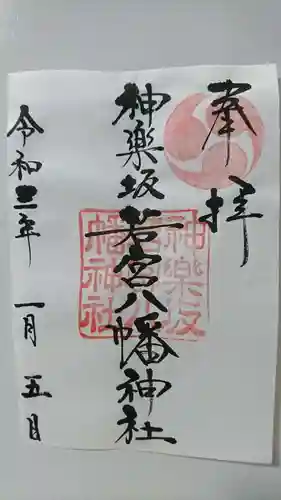 奉拝
神樂坂若宮八幡神社
神樂坂若宮八幡神社
令和三年 一月 五日